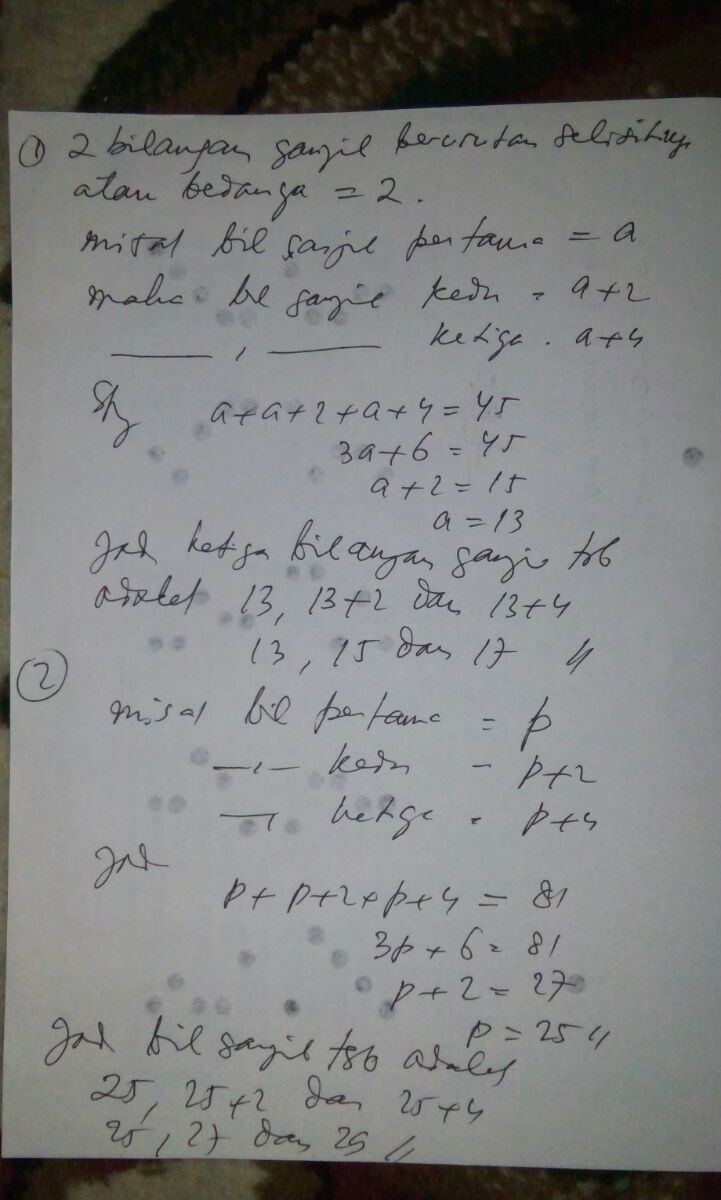 ① 2 bilangan ganjil berurutan selisihnya
atau bedanya = 2.
misal bil ganjil pertama = a
maka bil ganjil kedu = a+2
——— , ——— ketiga . a+4
Shg a+a+2+a+4=45
3a+6 = 45
a+2 = 15
a = 13
Jad ketiga bilangan ganjil tsb
adalah 13, 13+2 dan 13+4
13, 15 dan 17 //
②
misal bil pertama = p
—,— kedu - p+2
—, ketiga = p+4
Jad
p+p+2+p+4 = 81
3p+6 = 81
p+2 = 27
p = 25 //
Jad bil ganjil tsb adalah
25, 25+2 dan 25+4
25, 27 dan 29 //